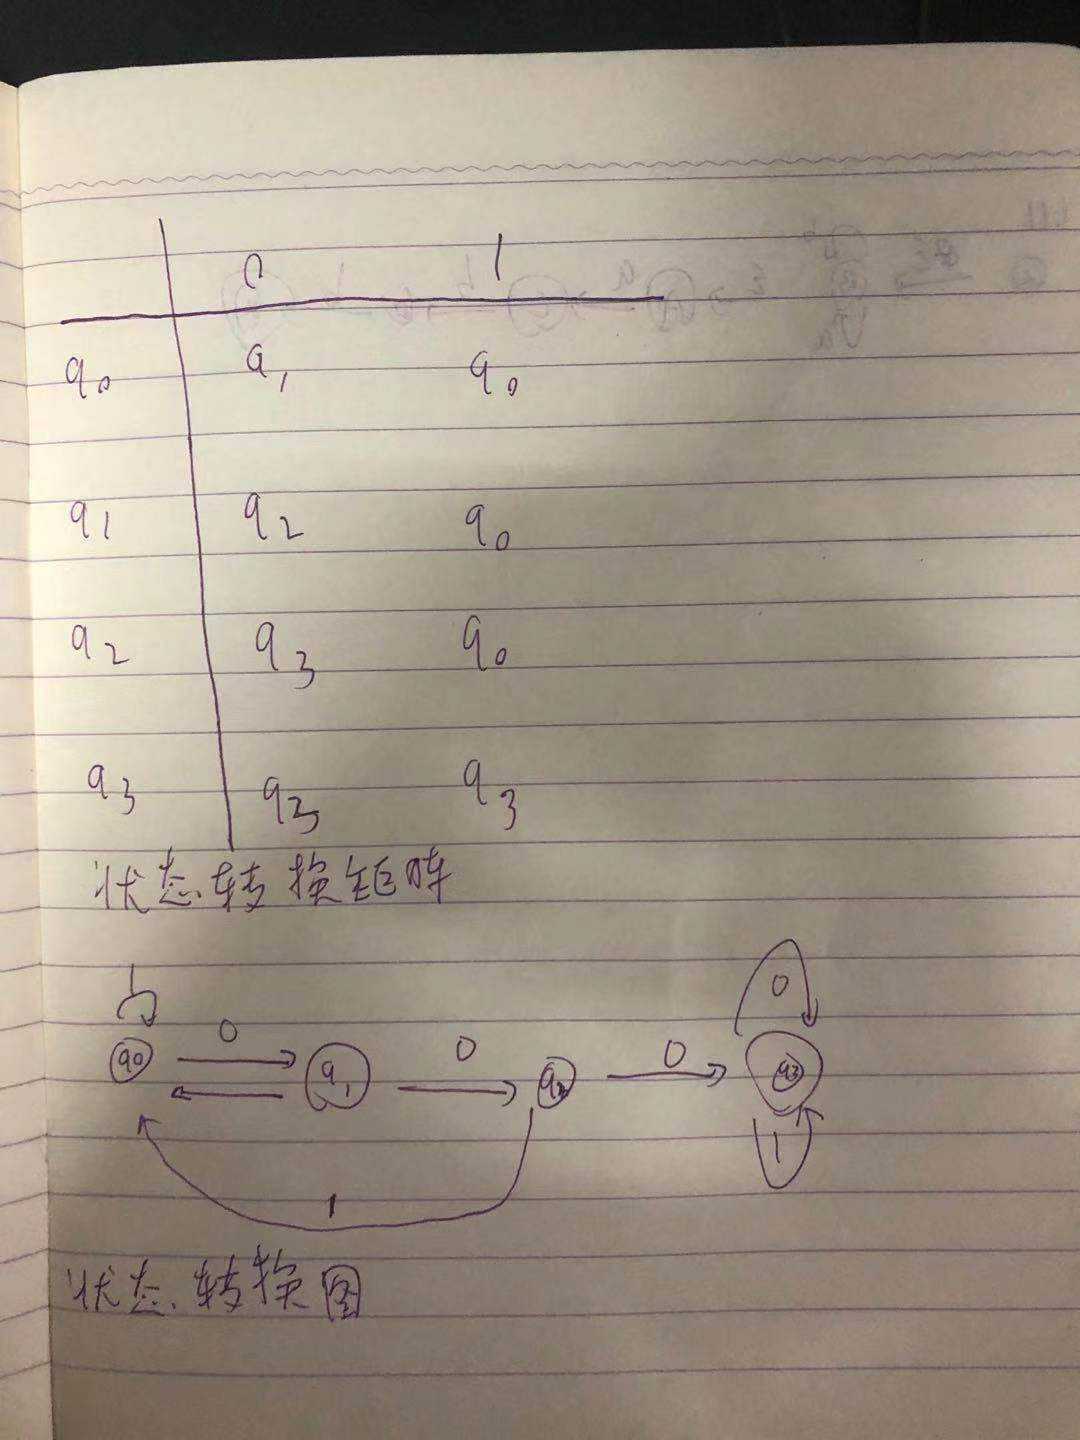 0 1
q0 q1 q0
q1 q2 q0
q2 q3 q0
q3 q3 q3
状态转换矩阵
1 0
0 0 0
q0 q1 q2 q3
1
1
状态转换图